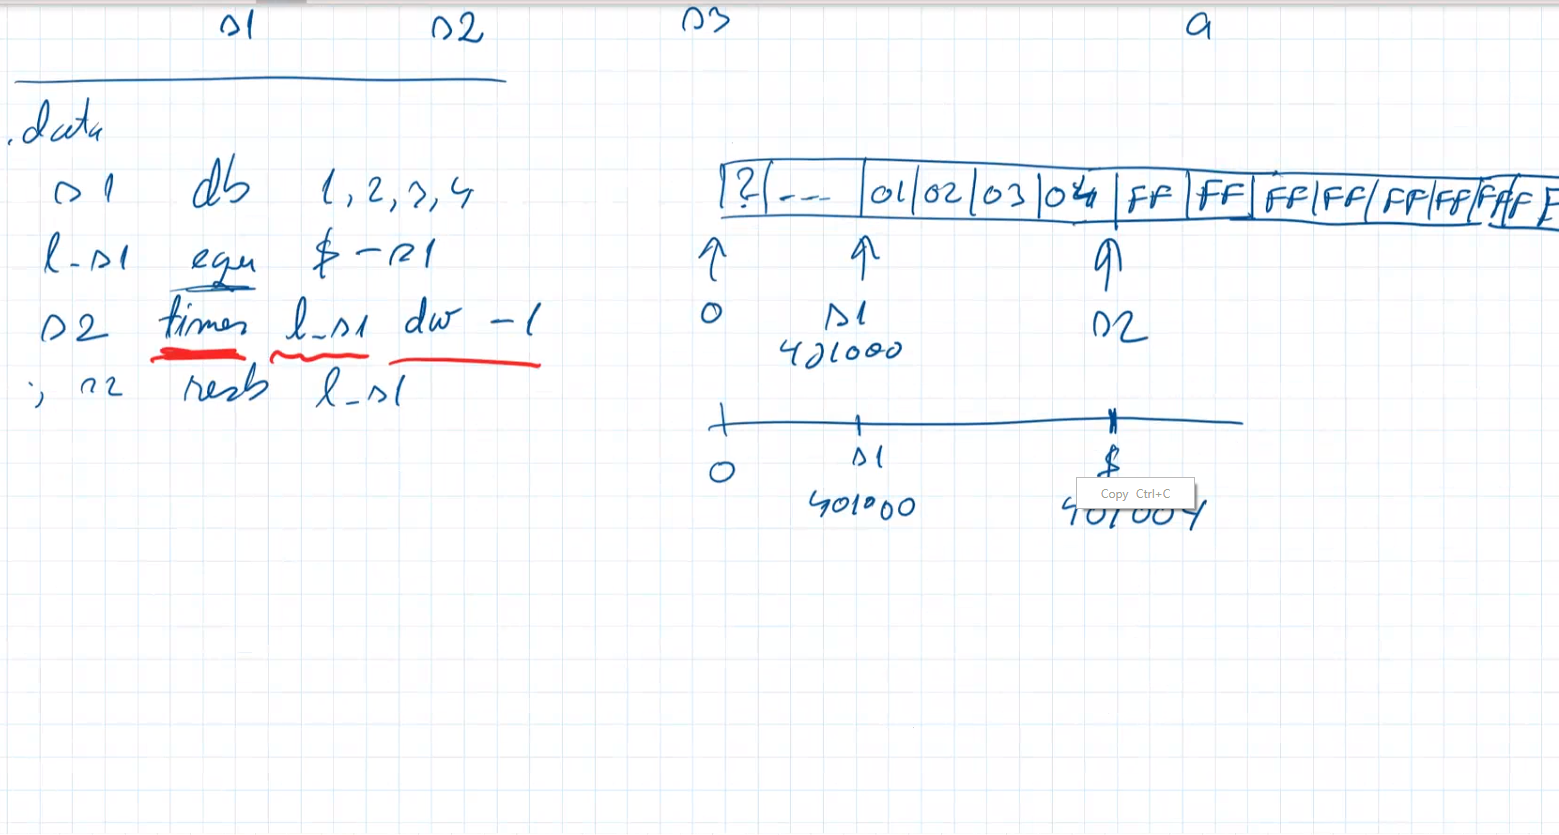 s1 s2 s3 a
.data
s1 db 1,2,3,4
l-s1 equ $-s1
s2 times l-s1 dw -1
; s2 resb l-s1
? --- 01 02 03 04 FF FF FF FF FF FF FF FF
0 s1 s2
401000
0 s1 $
401000 401004
Copy Ctrl+C